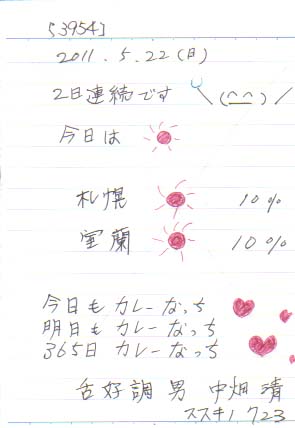 [3954]
2011.5.22(日)
2日連続です \(^^)/
今日は
札幌 10%
室蘭 10%
今日も カレーなっち
明日も カレーなっち
365日 カレーなっち
舌好調 男 中畑 清
ススキノ 723